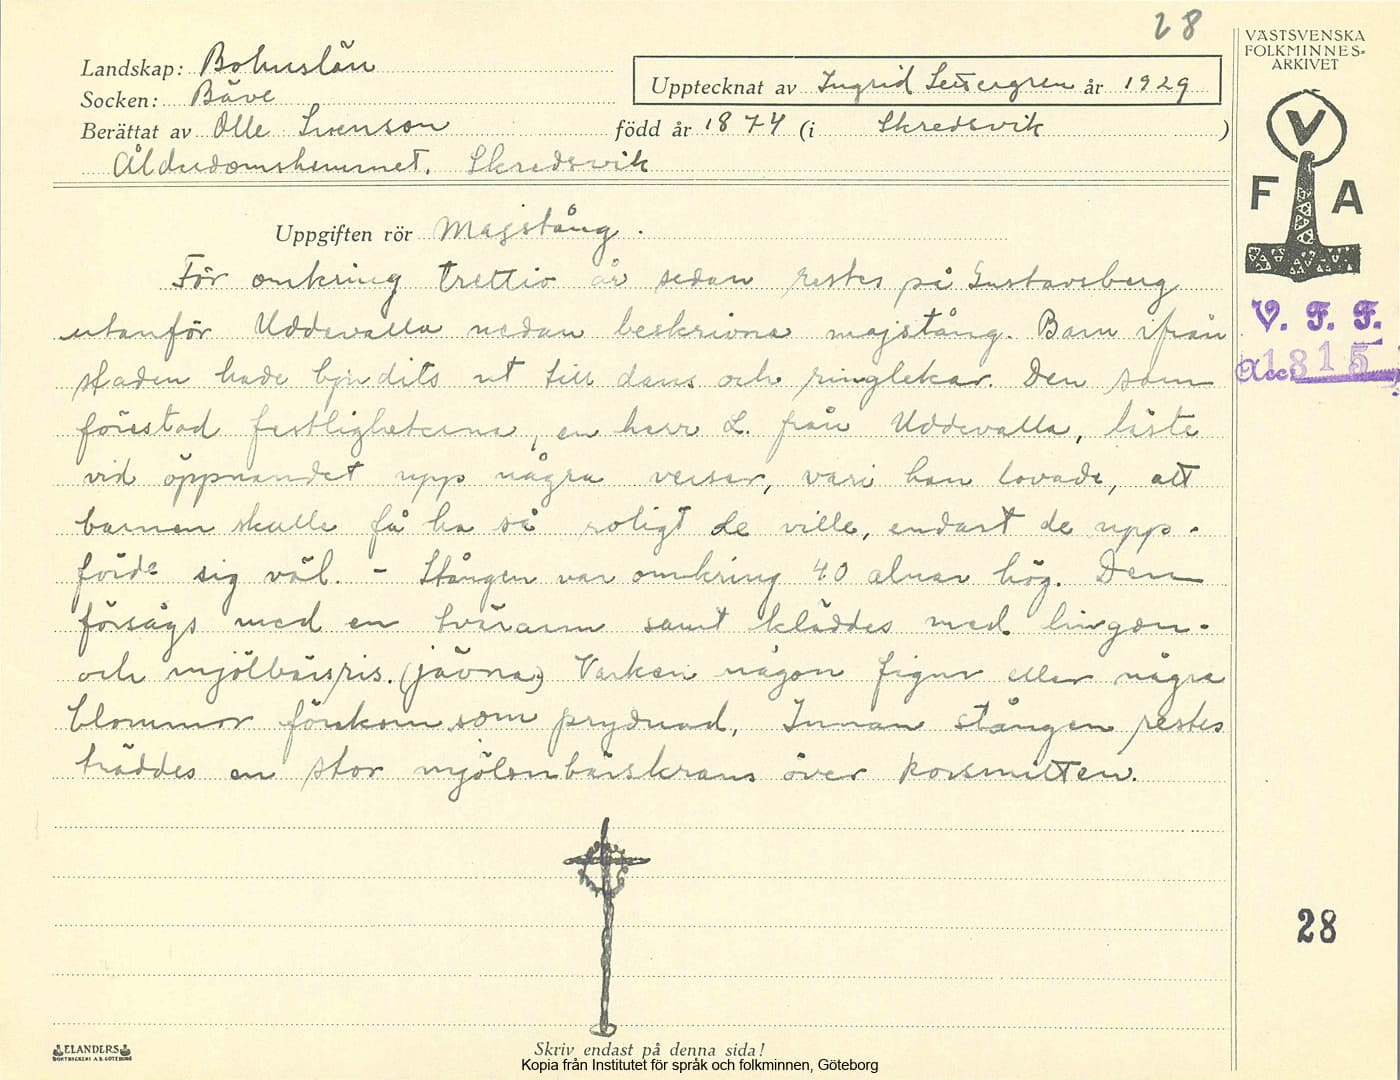 28
VÄSTSVENSKA
FOLKMINNES-
ARKIVET
Landskap: Bohuslän
Upptecknat av Ingrid Settergren år 1929
Socken: Bäve
Berättat av Olle Svenson född år 1874 (i Skredsvik)
Ålderdomshemmet. Skredsvik
V
F A
Uppgiften rör Majstång.
För omkring trettio år sedan restes på Gustavsberg
utanför Uddevalla nedan beskrivna majstång. Barn ifrån
staden hade bjudits ut till dans och ringlekar. Den som
förestod festligheterna, en herr L. från Uddevalla, läste
vid öppnandet upp några verser, vari han lovade, att
barnen skulle få ha så roligt de ville, endast de upp-
förde sig väl. - Stången var omkring 40 alnar hög. Den
försågs med en tvärarm samt kläddes med lingon-
och mjölbärsris. (jävna) Varken någon figur eller några
blommor förekom som prydnad. Innan stången restes
träddes en stor mjölonbärskrans över korsmitten.
V. F. F.
Acc. 1815
28
ELANDERS
BOKTRYCKERI A.B. GÖTEBORG
Skriv endast på denna sida!
Kopia från Institutet för språk och folkminnen, Göteborg